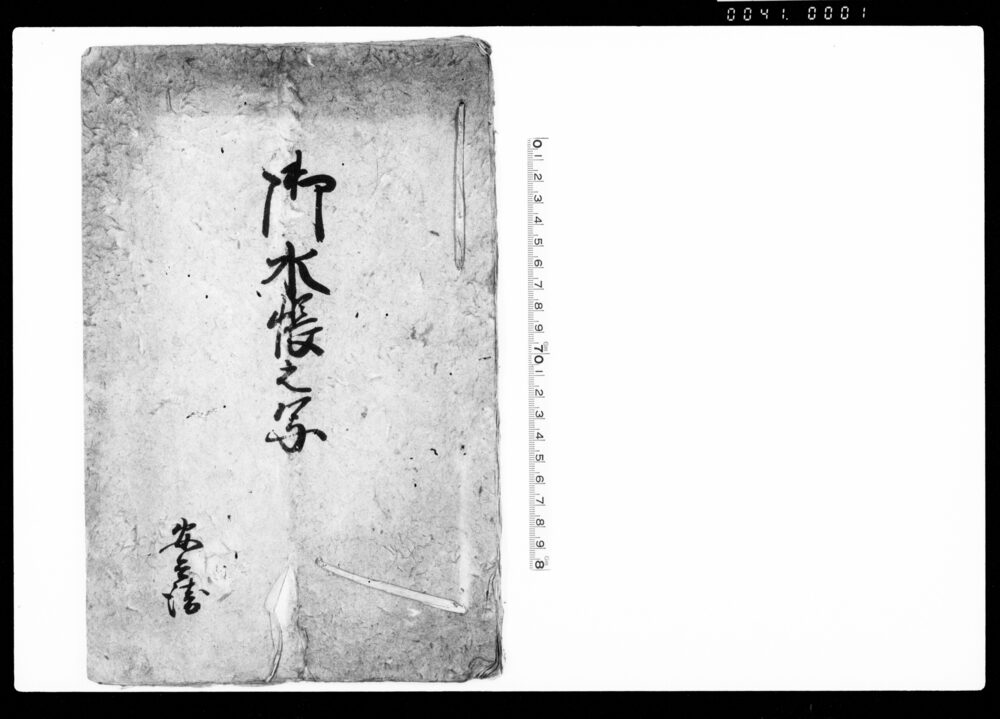 0041. 0001
御水帳之写
安兵衛
0 1 2 3 4 5 6 7 8 9 70 1 2 3 4 5 6 7 8 9 8